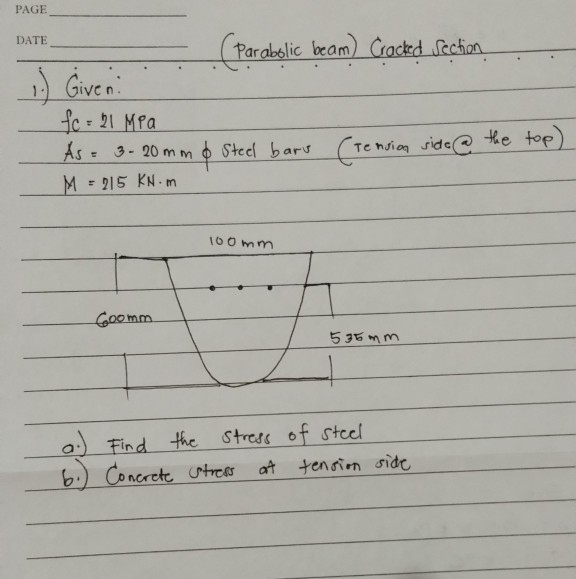 PAGE
DATE
(Parabolic beam) Cracked Section
1.) Given:
fc = 21 MPa
As = 3 - 20mm ϕ Steel bars (Tension side @ the top)
M = 215 KN.m
100mm
600mm
535mm
a.) Find the stress of steel
b.) Concrete stress at tension side